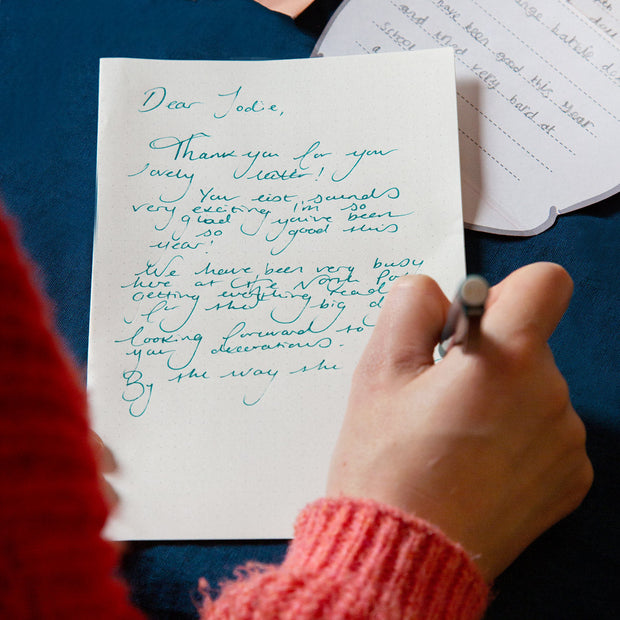 Dear Jodie,
Thank you for your
lovely letter!
You list sounds
very exciting I'm so
glad you've been
so good this
year!
We have been very busy
here at the North Pol
getting everything read
for the big d
looking forward to
your decorations.
By the way the
have been good this year
and tried very hard at
school